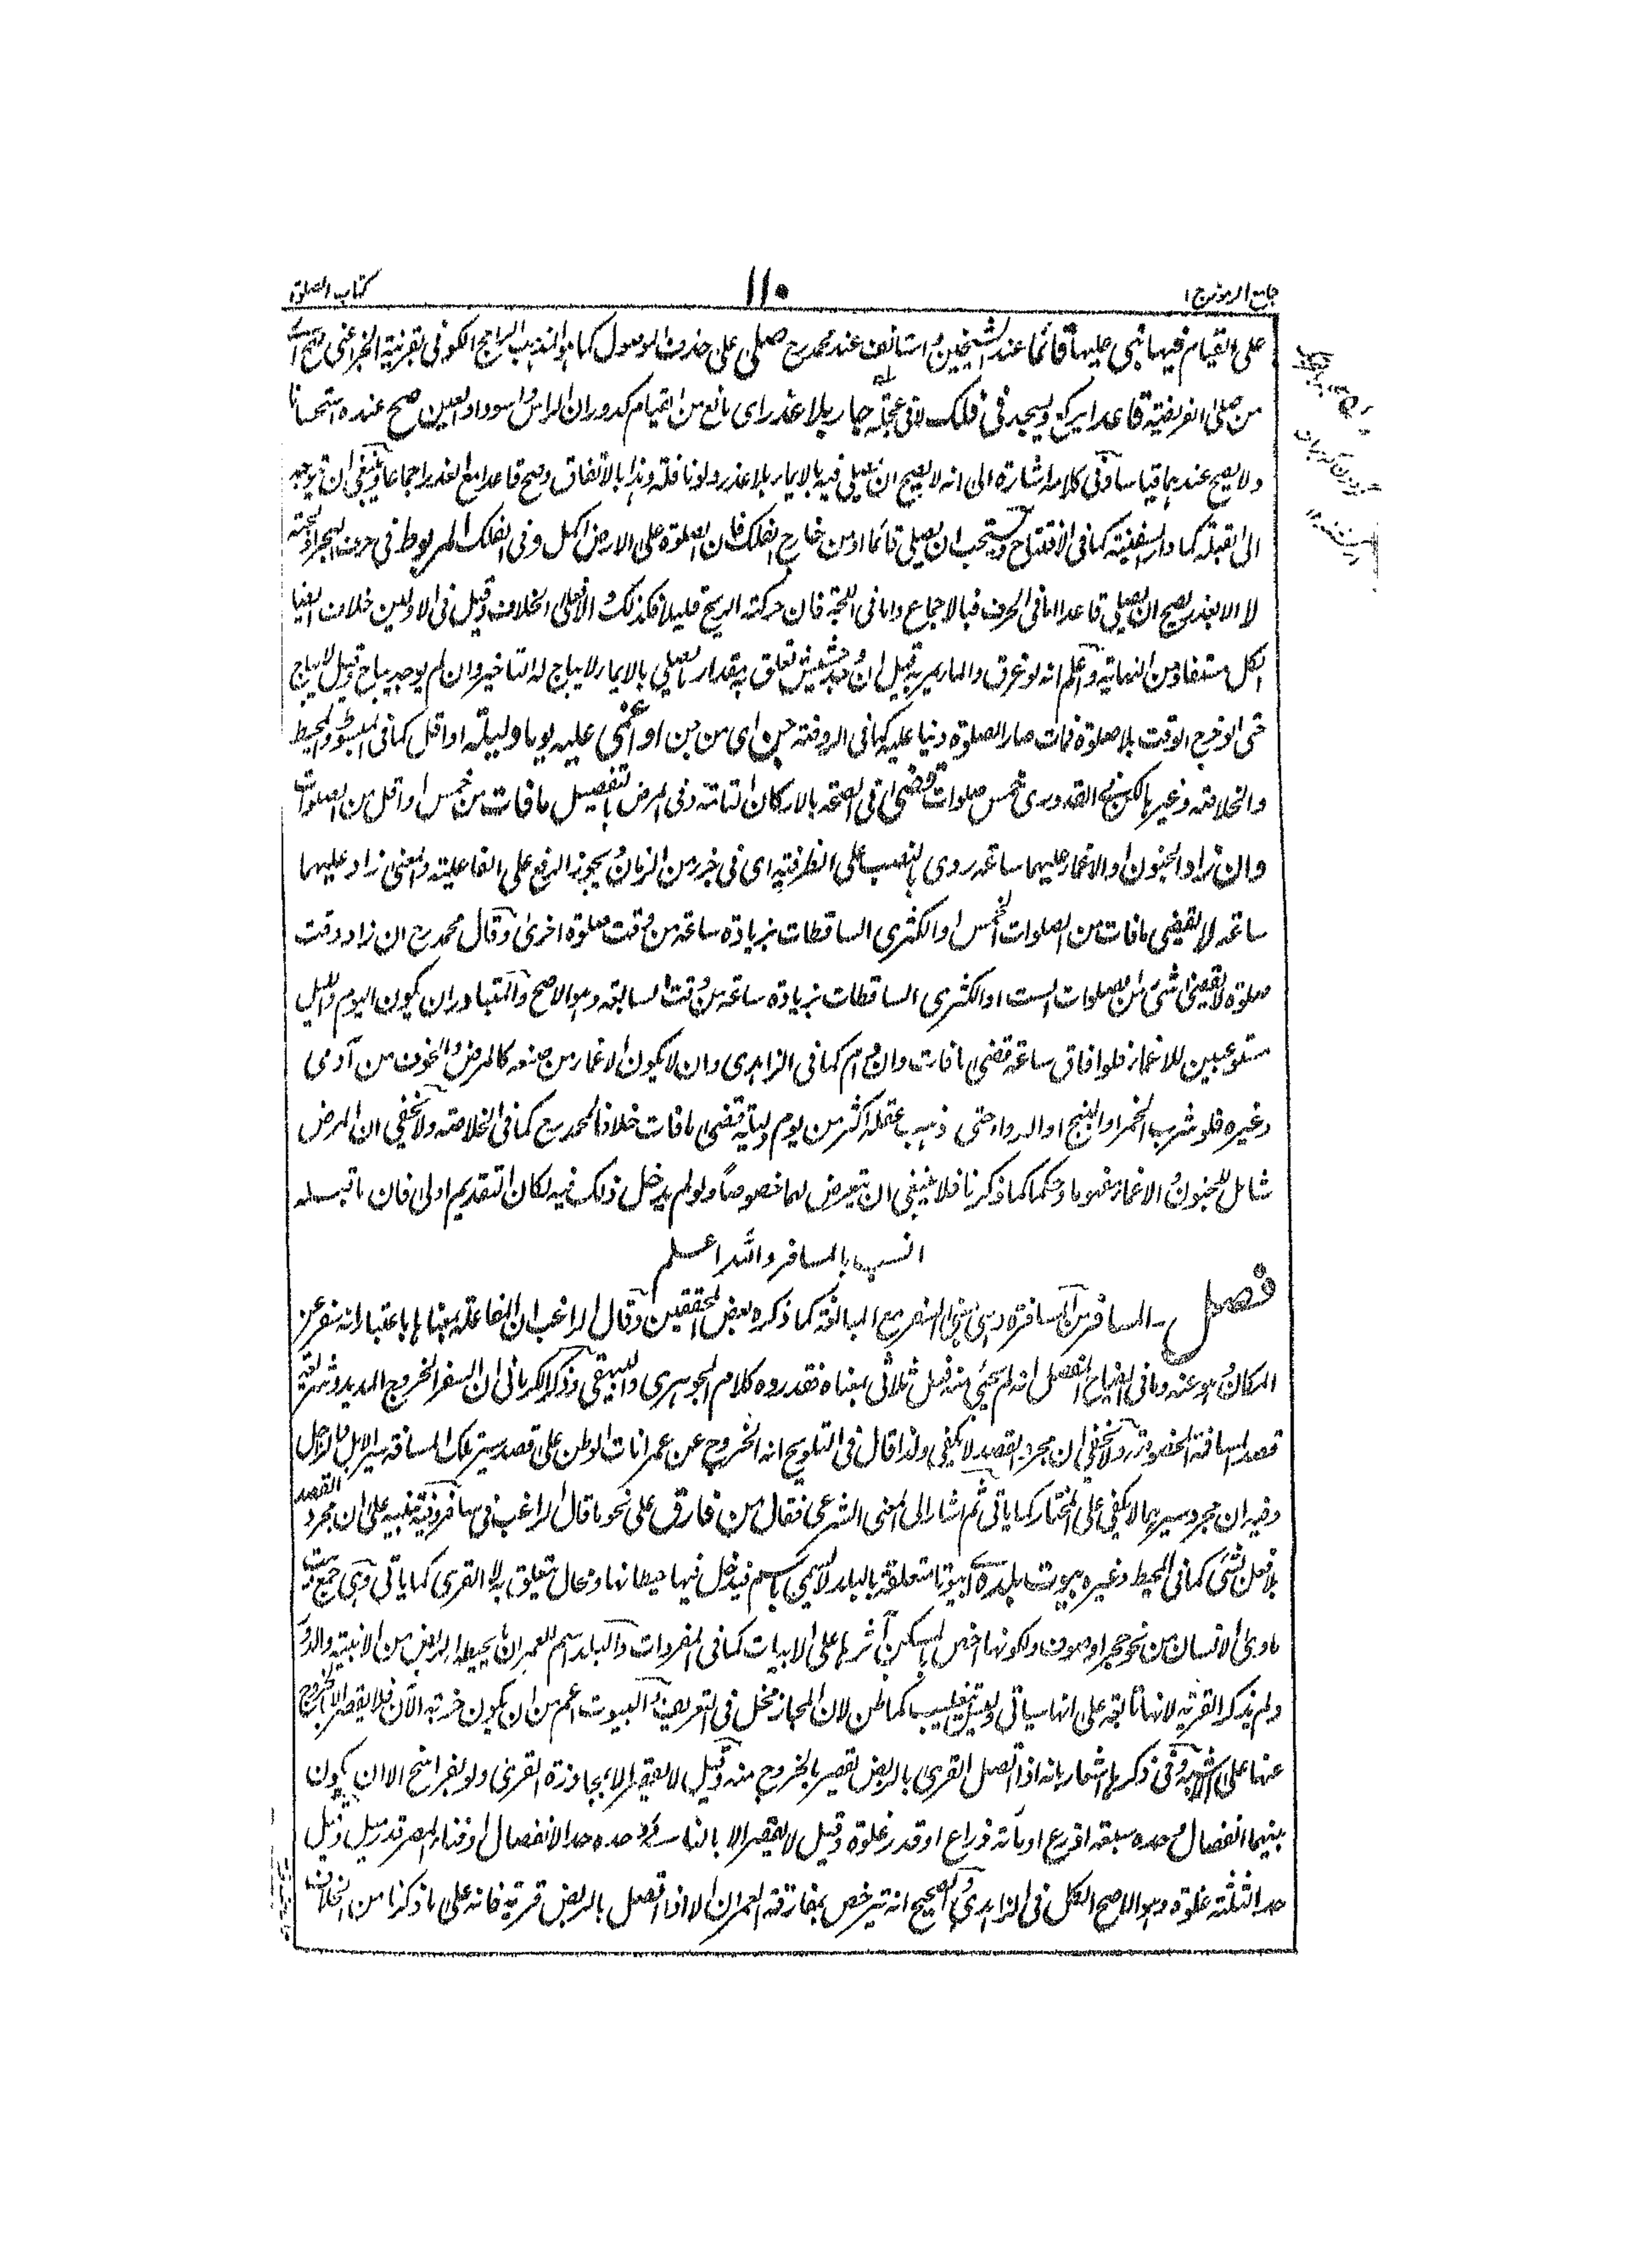 جامع الرموز ج ١
١١٠
كتاب الصلوة
على القيام فيها بنى عليها قائما عند الشيخين و استانف عند محمد رح صلى على حذف الموصول كما هو المذهب الراجح الكوفى بقرنية الخبر اعنى صح اى
من صلى الفريضة قاعدا يركع ويسجد فى فلك لا فى عجلة جار بلا عذر اى مانع من القيام كدوران الراس و اسوداد العين صح عنده استحسانا
ولا يصح عندهما قياسا وفى كلامه اشارة الى انه لا يصح ان يصلى فيه بالايماء بلا عذر ولو نافلة وهذا بالاتفاق وصح قاعدا مع العذر اجماعا وينبغى ان يتوجه
الى القبلة كما دار السفينة كما فى الافتتاح ويستحب ان يصلى قائما او من خارج الفلك فان الصلوة على الارض اكمل و فى الفلك المربوط فى حرف البحر او لجته
لا الا بعذر يصح ان يصلى قاعدا اما فى الحرف فبالاجماع واما فى اللجة فان حركته الريح قليلا فكذلك و الا فعلى الخلاف وقيل فى الاولين خلاف ايضا
الكل مستفاد من النهاية واعلم انه لو غرق والماء يمر به قيل ان وجد شيئ يتعلق به مقدار ما يصلى بالايماء لا يباح له التاخير وان لم يوجد يباح وقيل لا يباح
حتى لو خرج الوقت بلا صلوة فمات صار الصلوة دينا عليه كما فى الروضة جن اى من جن او اغمى عليه يوما وليلة او اقل كما فى المبسوط والمحيط
والخلاصة وغيرها لكن فى القدورى خمس صلوات قضى اى فى الصحة بالاركان التامة وفى المرض بالتفصيل ما فات من خمس او اقل من الصلوات
وان زاد الجنون او الاغماء عليهما ساعة روى بالنصب على الظرفية اى فى جزء من الزمان و يجوز الرفع على الفاعلية والمعنى زاد عليهما
ساعة لا يقضى ما فات من الصلوات الخمس او الكثرى الساقطات بزيادة ساعة من وقت صلوة اخرى وقال محمد رح ان زاد وقت
صلوة لا يقضى شئ من الصلوات الست او الكثرى الساقطات بزيادة ساعة من وقت السابقة وهو الاصح والمتبادر ان يكون اليوم والليل
مستوعبين للاغماء فلو افاق ساعة قضى ما فات وان لم يدم كما فى الزاهدى وان لا يكون الاغماء من صنعه كالمرض والخوف من آدمى
وغيره فلو شرب الخمر او البنج او الدواء حتى ذهب عقله اكثر من يوم وليلة قضى ما فات خلافا لمحمد رح كما فى الخلاصة ولا يخفى ان المرض
شامل للجنون و الاغماء مفهوما وحكما كما ذكرنا فلا ينبغى ان يتعرض لهما خصوصاً ولو لم يدخل ذلك فيه لكان التقديم اولى فان ما قبله
انسب بالمسافر والله اعلم
فصل ـ المسافر من المسافرة وهى بمعنى السفر مع المبالغة كما ذكره بعض المحققين وقال الراغب ان المفاعلة بمعناها باعتبار انه سفر عن
المكان و هو عنه وما فى ايضاح المفصل انه لم يجئ منه فعل ثلاثى بمعناه فقد رده كلام الجوهرى والبيهقى وذكر الكرمانى ان السفر الخروج المديد وشريعة
قصد المسافة المخصوصة ولا يخفى ان مجرد القصد لا يكفى ولذا قال فى التلويح انه الخروج عن عمرانات الوطن على قصد سير تلك المسافة سير الابل والراجل
وفيه ان مجرد سيرهما لا يكفى على المختار كما ياتى ثم اشار الى المعنى الشرعى فقال من فارق على نحو ما قال الراغب فى سافر وفيه تنبيه على ان مجرد القصد
بلا فعل لشئ كما فى المحيط وغيره بيوت بلده اى بيوتا متعلقة بالبلد فيدخل فيها حيطانها ومحال تتعلق به لا القرى كما ياتى وهى جمع بيت
ماوى الانسان من نحو حجر او صوف ولكونها اخص بالمسكن آثرها على الابيات كما فى المفردات والبلد اسم للعمران يحيطه الربض من الابنية والدور
ولم يذكر القرية لانها تابعة على انها سياتى لا تغليب كما ظن لان المجاز مخل فى التعريف و البيوت اعم من ان يكون خربة الآن فلا يقصر الا بالخروج
عنها على الاشبه وفى ذكرها اشعار بانه اذا اتصل القرى بالربض يقصر بالخروج منه وقيل لا يقصر الا بمجاوزة القرى ولو بفراسخ الا ان يكون
بينهما انفصال وحده سبعة اذرع او مائة ذراع او قدر غلوة وقيل لا يقصر الا بالفناء وحده حد الانفصال او فناء المصر قدر ميل وقيل
حد الثلثة غلوة وهو الاصح الكل فى الزاهدى والصحيح انه يترخص بمفارقة العمران الا اذا اتصل بالربض قرية فانه على ما ذكرنا من الخلاف